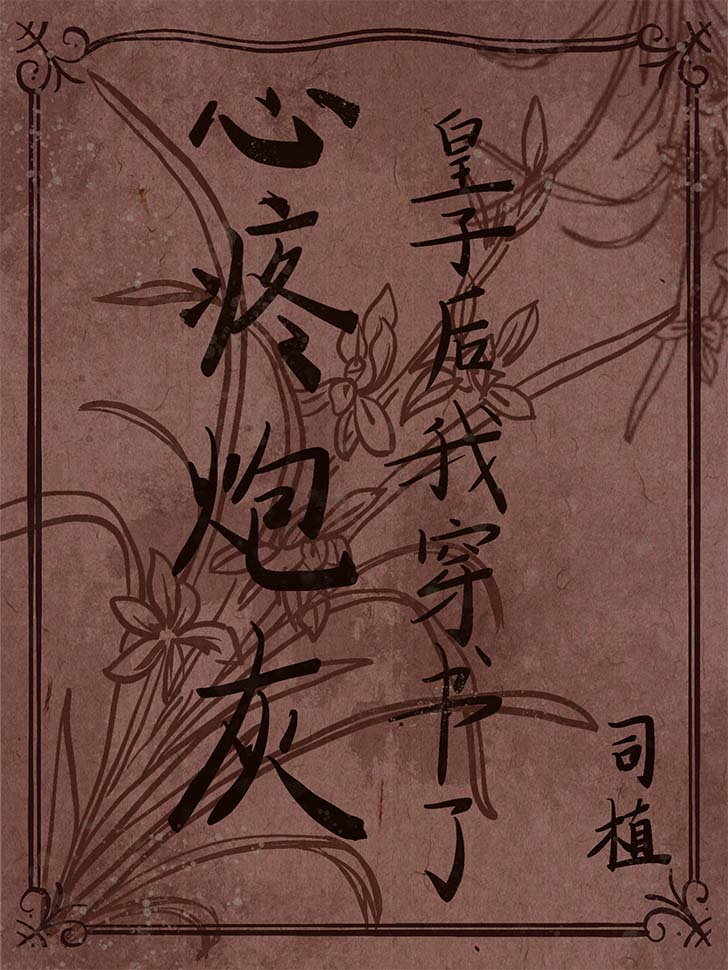 心疼炮灰
皇子后我穿书了
司植